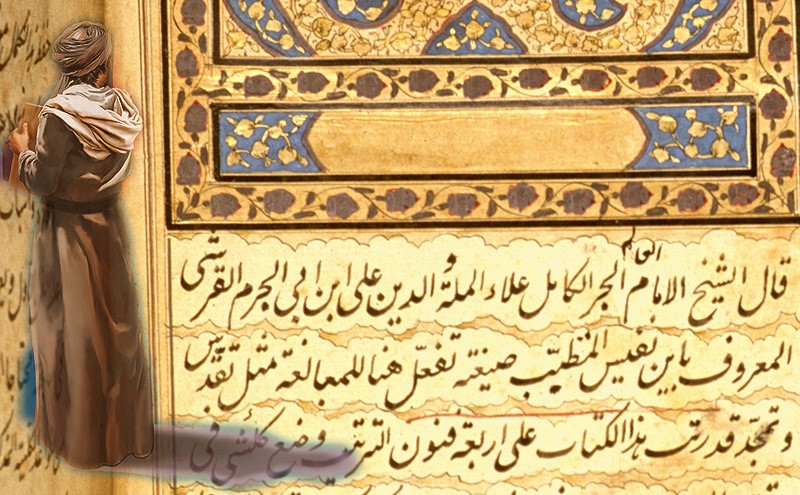 قال الشيخ الامام العالم الحبر الكامل علاء الملة و الدين على ابن ابى الحرم القرشى
المعروف بابن نفيس المتطبب صيغة تفعل هنا للمبالغة مثل تقدس
وتمجد قد رتبت هذا الكتاب على اربعة فنون الترتيب وضع كل شئ فى